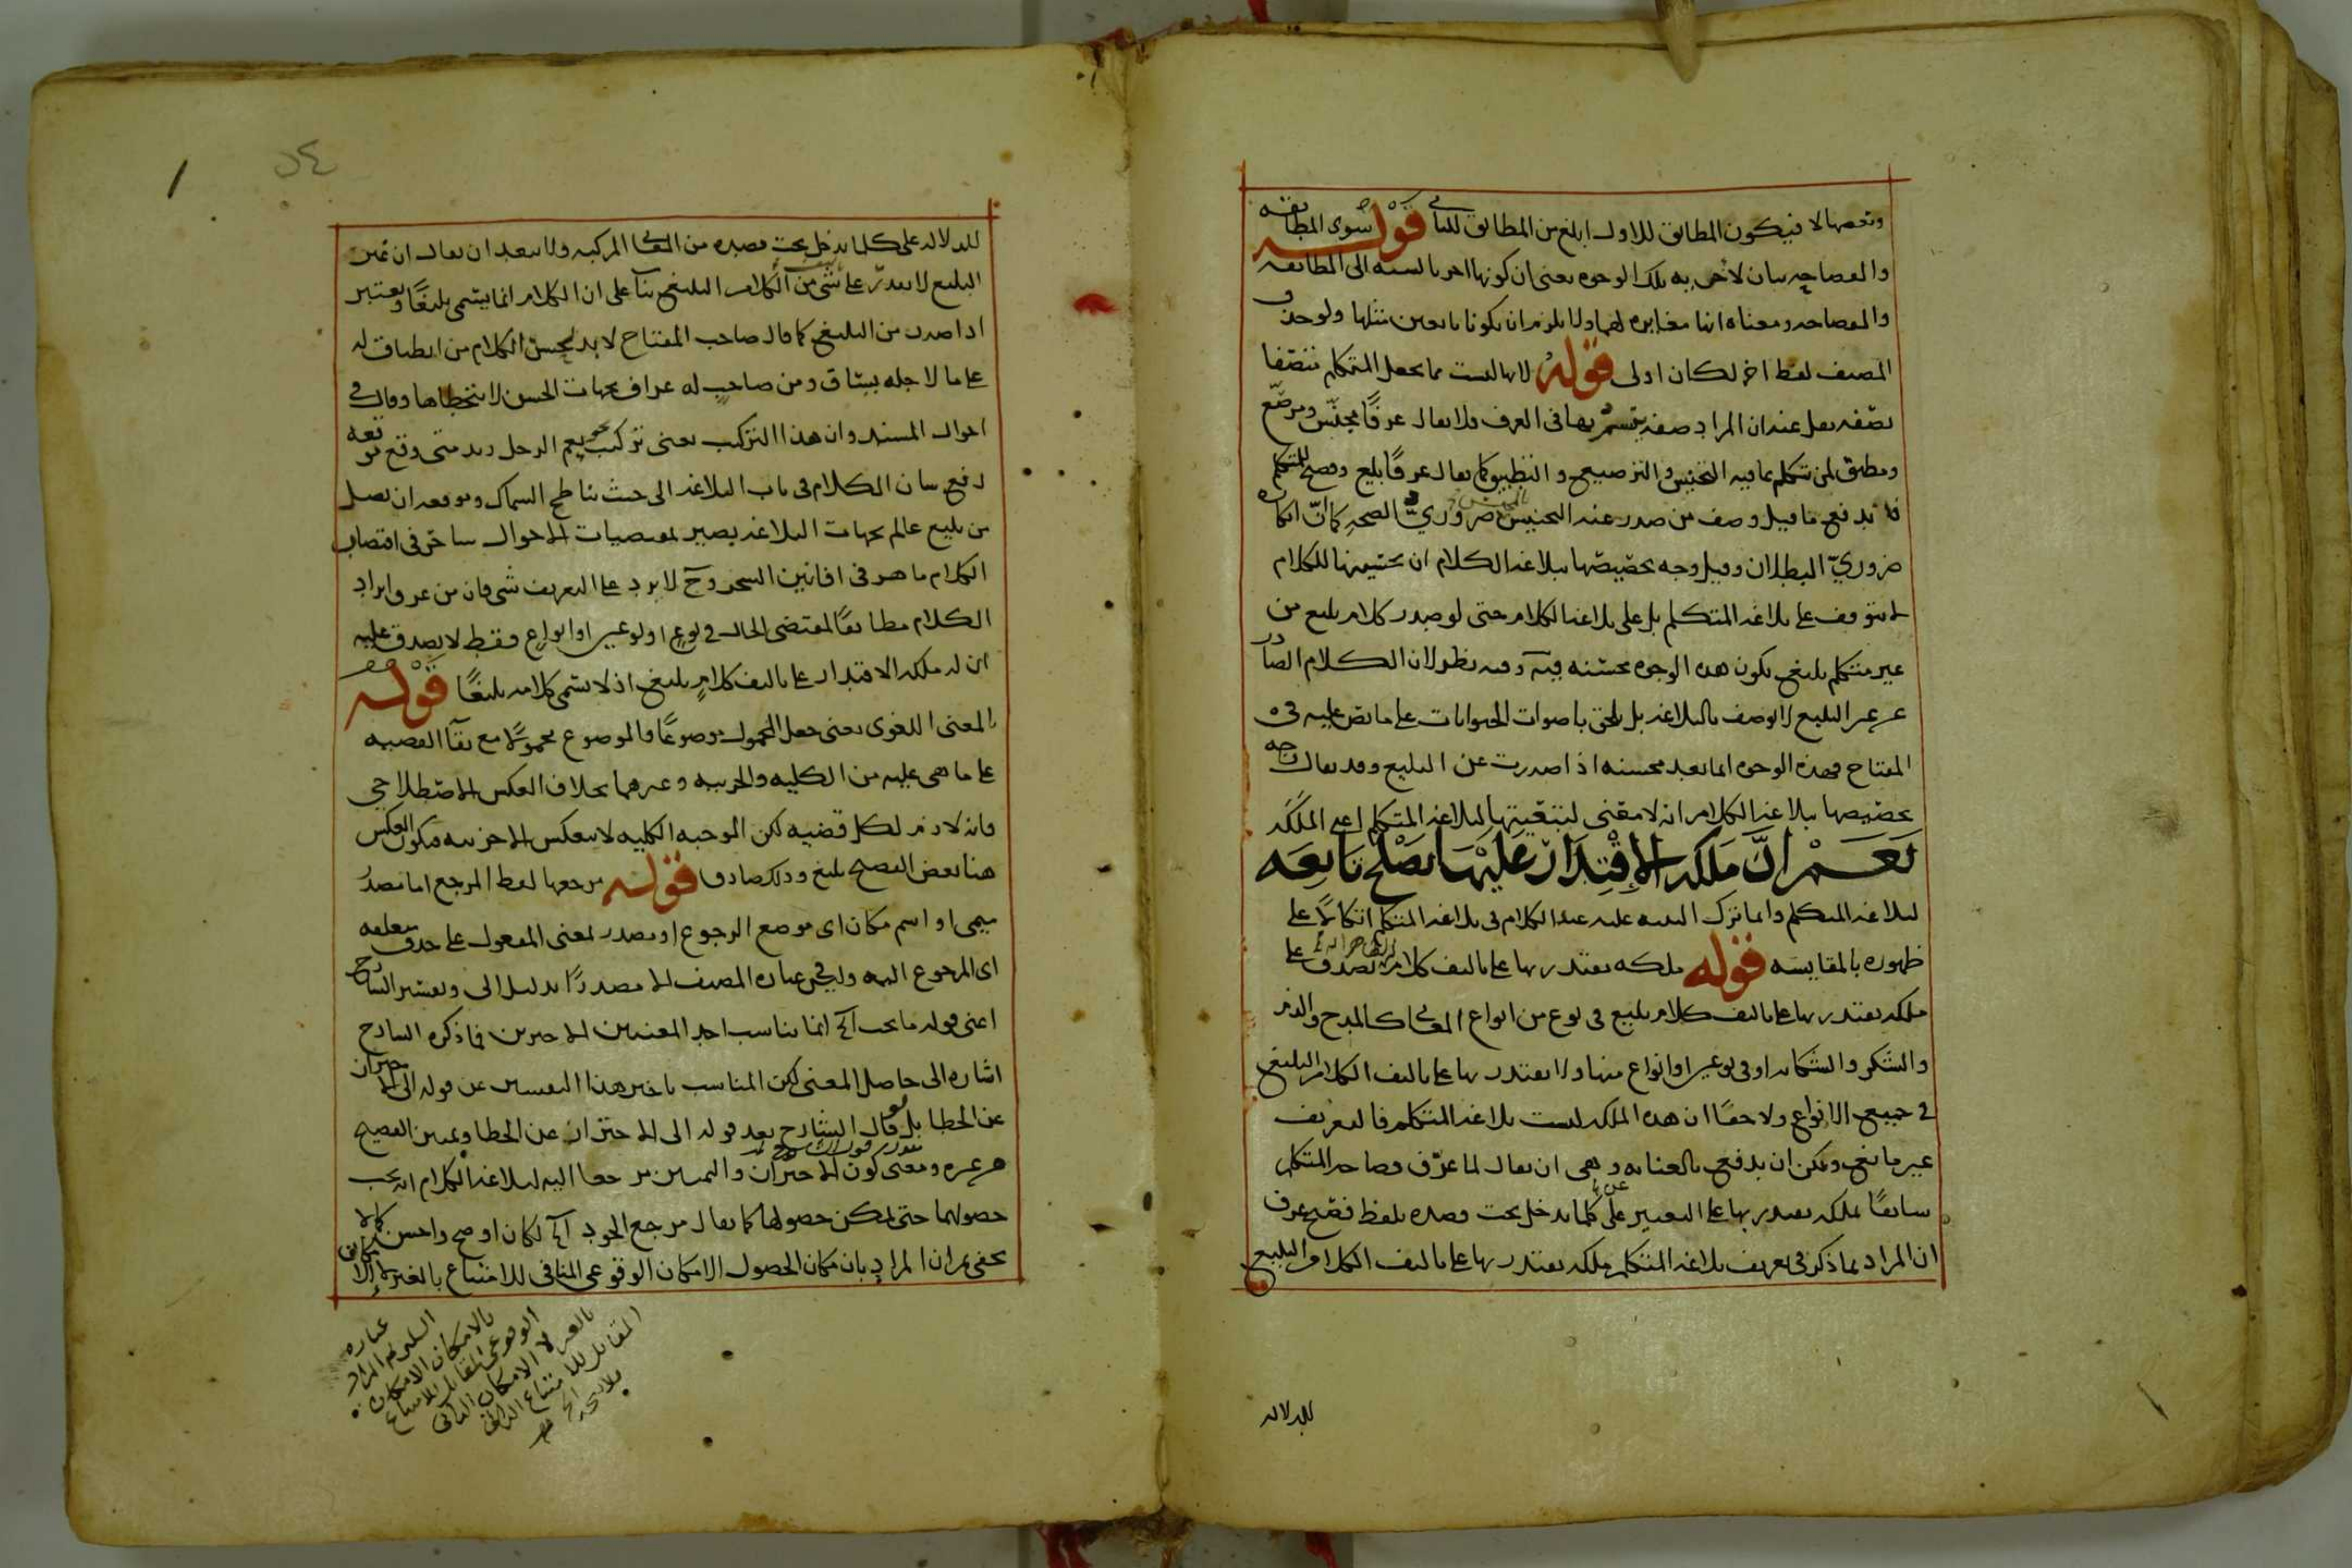 وبعضها لا فيكون المطابق للاول ابلغ من المطابق للثاني قوله سوى المطابقه
والفصاحه بيان لاخر به تلك الوجوه يعني ان كونها اخر بالنسبه الى المطابقه
والفصاحه ومعناه انها مغايره لهما ولا يلزم ان يكونا تابعين مثلها ولو حذف
المصنف لفظ اخر لكان اولى قوله لانها ليست مما يجعل المتكلم متصفا
بصفه لعل عنده ان المراد صفه يتسم بها في العرف ولا يقال عرفًا مجنّس ومرصّع
ومطبق لمن تكلم بما فيه التجنيس والترصيع والتطبيق كما يقال عرفًا بليغ وفصيح للمتكلم
فاندفع ما قيل وصف من صدر عنه التجنيس ضروريّ الصحه كما انّ انكاره
ضروريّ البطلان وقيل وجه تخصيصها ببلاغه الكلام ان تحسينها للكلام
لا يتوقف على بلاغه المتكلم بل على بلاغه الكلام حتى لو صدر كلام بليغ من
غير متكلم بليغ يكون هذه الوجوه محسنه فيه وفيه نظر لان الكلام الصادر
عن غير البليغ لا يوصف بالبلاغه بل يلحق باصوات الحيوانات على ما نص عليه في
المفتاح فهذه الوجوه انما تعد محسنه اذا صدرت عن البليغ وقد يقال وجه
تخصيصها ببلاغه الكلام انه لا معنى لتبعيتها لبلاغه المتكلم اعني الملكه
نَعَمْ انَّ مَلَكَه الاِقْتِدَارِ عَلَيْهَا يَصْلُح تَابِعَه
لبلاغه المتكلم وانما ترك التنبيه عليه عند الكلام في بلاغه المتكلم اتكالًا على
ظهوره بالمقايسه قوله ملكه يقتدر بها على تاليف كلام يصدق على
ملكه يقتدر بها على تاليف كلام بليغ في نوع من انواع المعاني كالمدح والذم
والشكر والشكايه او في نوعين او انواع منها ولا يقتدر بها على تاليف الكلام البليغ
في جميع الانواع ولا خفا ان هذه الملكه ليست بلاغه المتكلم فالتعريف
غير مانع ويمكن ان يدفع بالعنايه وهي ان يقال لما عرّف فصاحه المتكلم
سابقًا بملكه يقتدر بها على التعبير عن كلما يدخل تحت قصده بلفظ فصيح عرف
ان المراد بما ذكر في تعريف بلاغه المتكلم ملكه يقتدر بها على تاليف الكلام البليغ
للدلاله
٥٤
للدلاله على كلما يدخل تحت قصده من المعاني المركبه ولا يبعد ان يقال ان غير
البليغ لا يقدر على شي من الكلام البليغ بناء على ان الكلام انما يسمى بليغًا ويعتبر
اذا صدر من البليغ كما قال صاحب المفتاح لا بد لحسن الكلام من انطباق له
على ما لاجله يساق ومن صاحب له عراف بجهات الحسن لا يتخطاها وقال في
احوال المسند وان هذا التركيب يعني تركيب نحو نعم الرجل زيد متى وقع موقعه
رفع شان الكلام في باب البلاغه الى حيث يناطح السماك وموقعه ان يصل
من بليغ عالم بجهات البلاغه بصير بمقتضيات الاحوال ساحر في اقتضاب
الكلام ماهر في افانين السحر وح لا يرد على التعريف شي فان من عرف ايراد
الكلام مطابقًا لمقتضى الحال في نوع او نوعين او انواع فقط لا يصدق عليه
ان له ملكه الاقتدار على تاليف كلام بليغ اذ لا يسمى كلامه بليغًا قوله
بالمعنى اللغوي يعني جعل المحمول موضوعًا والموضوع محمولًا مع بقاء القضيه
على ما هي عليه من الكليه والجزييه وغيرهما بخلاف العكس الاصطلاحي
فانه لازم لكل قضيه لكن الموجبه الكليه لا تنعكس الا جزييه فيكون العكس
هنا بعض الفصيح بليغ وذلك صادق قوله مرجعها لفظ المرجع اما مصدر
ميمي او اسم مكان اي موضع الرجوع او مصدر بمعنى المفعول على حذف متعلقه
اي المرجوع اليه ولا يخفى عباره المصنف الا مصدرًا بدليل الى وتفسير الشارح
اعني قوله ما يجب الخ انما يناسب احد المعنيين الاخيرين فما ذكره الشارح
اشاره الى حاصل المعنى لكن المناسب تاخير هذا التفسير عن قوله الى الاحتراز
عن الخطا بل لو قال الشارح بعد قوله الى الاحتراز عن الخطا وتمييز الفصيح
عن غيره ومعنى كون الاحتراز والتمييز مرجعا اليه لبلاغه الكلام انه يجب
حصولهما حتى يمكن حصولها كما يقال مرجع الجود الخ لكان اوضح واحسن كما لا
يخفى ثم ان المراد بامكان الحصول الامكان الوقوعي المنافي للامتناع بالغير لا
عباره
السلم ثم المراد
بالامكان الامكان
الوقوعي المقابل للامتناع
بالغير لا الامكان الذاتي
المقابل للامتناع الذاتي